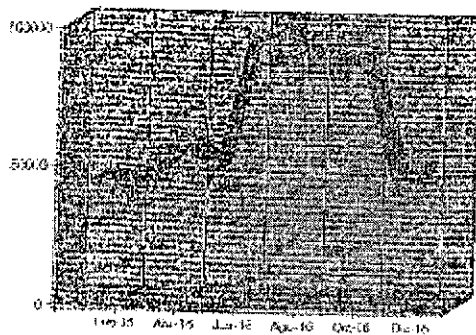 100000
50000
0
Feb-16 Abr-16 Jun-16 Ago-16 Oct-16 Dic-16